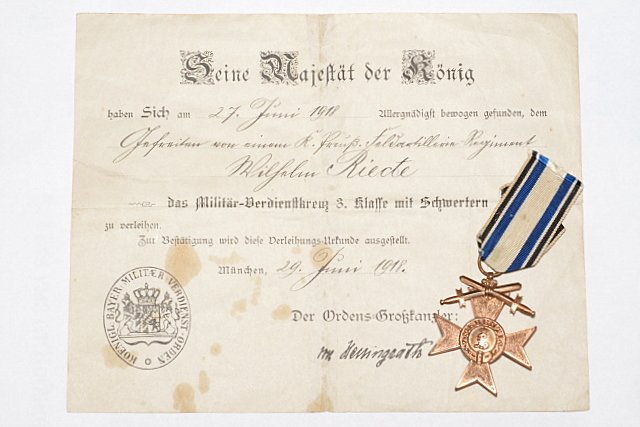 Seine Majestät der König
haben Sich am 27. Juni 1918 Allergnädigst bewogen gefunden, dem
Gefreiten von einem K. Preuß. Feldartillerie Regiment
Wilhelm Riede
das Militär-Verdienstkreuz 3. Klasse mit Schwertern
zu verleihen.
Zur Bestätigung wird diese Verleihungs-Urkunde ausgestellt.
München, 29. Juni 1918.
KOENIGL. BAYER. MILITÆR-VERDIENST-ORDEN
Der Ordens-Großkanzler: